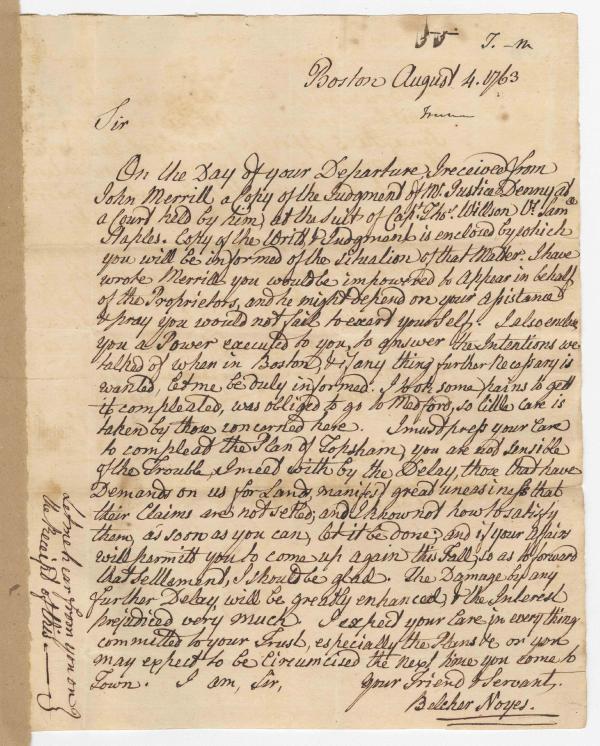 J. - m
Boston August 4. 1763
Sir
On the Day of your Departure, I received from
John Merrill, a Copy of the Judgment of Mr. Justice Denny at
a Court held by him, at the Suit of Capt. Thos. Willson Vs. Saml
Staples. Copy of the Writt, & Judgment is enclosed by which
you will be informed of the Situation of that Matter. I have
wrote Merrill you would be impowered to appear in behalf
of the Proprietors, and he might depend on your Assistance
& pray you would not fail to exert yourself. I also enclose
you a Power executed to you, to answer the Intentions we
talked of when in Boston, & if any thing further necessary is
wanted, let me be duly informed. I took some pains to gett
it compleated, was obliged to go to Medford, so little care is
taken by those concerned here. I must press your Care
to compleat the Plan of Topsham, you are not sensible
of the Trouble, I meet with by the Delay, those that have
Demands on us for Land, manifest great uneasiness that
their Claims are not setled, and I know not how to satisfy
them, as soon as you can, let it be done, and if your affairs
will permitt you to come up again this Fall, so as to forward
that settlement, I should be glad. The Damage by any
further Delay will be greatly enhanced, & the Interest
prejudiced very much. I expect your Care in every thing
committed to your Trust, especially the Plans &c or you
may expect to be Circumcised the next time you come to
Town. I am, Sir, your Friend & Servant,
Belcher Noyes.
Let me hear from you on
the Receipt of this.